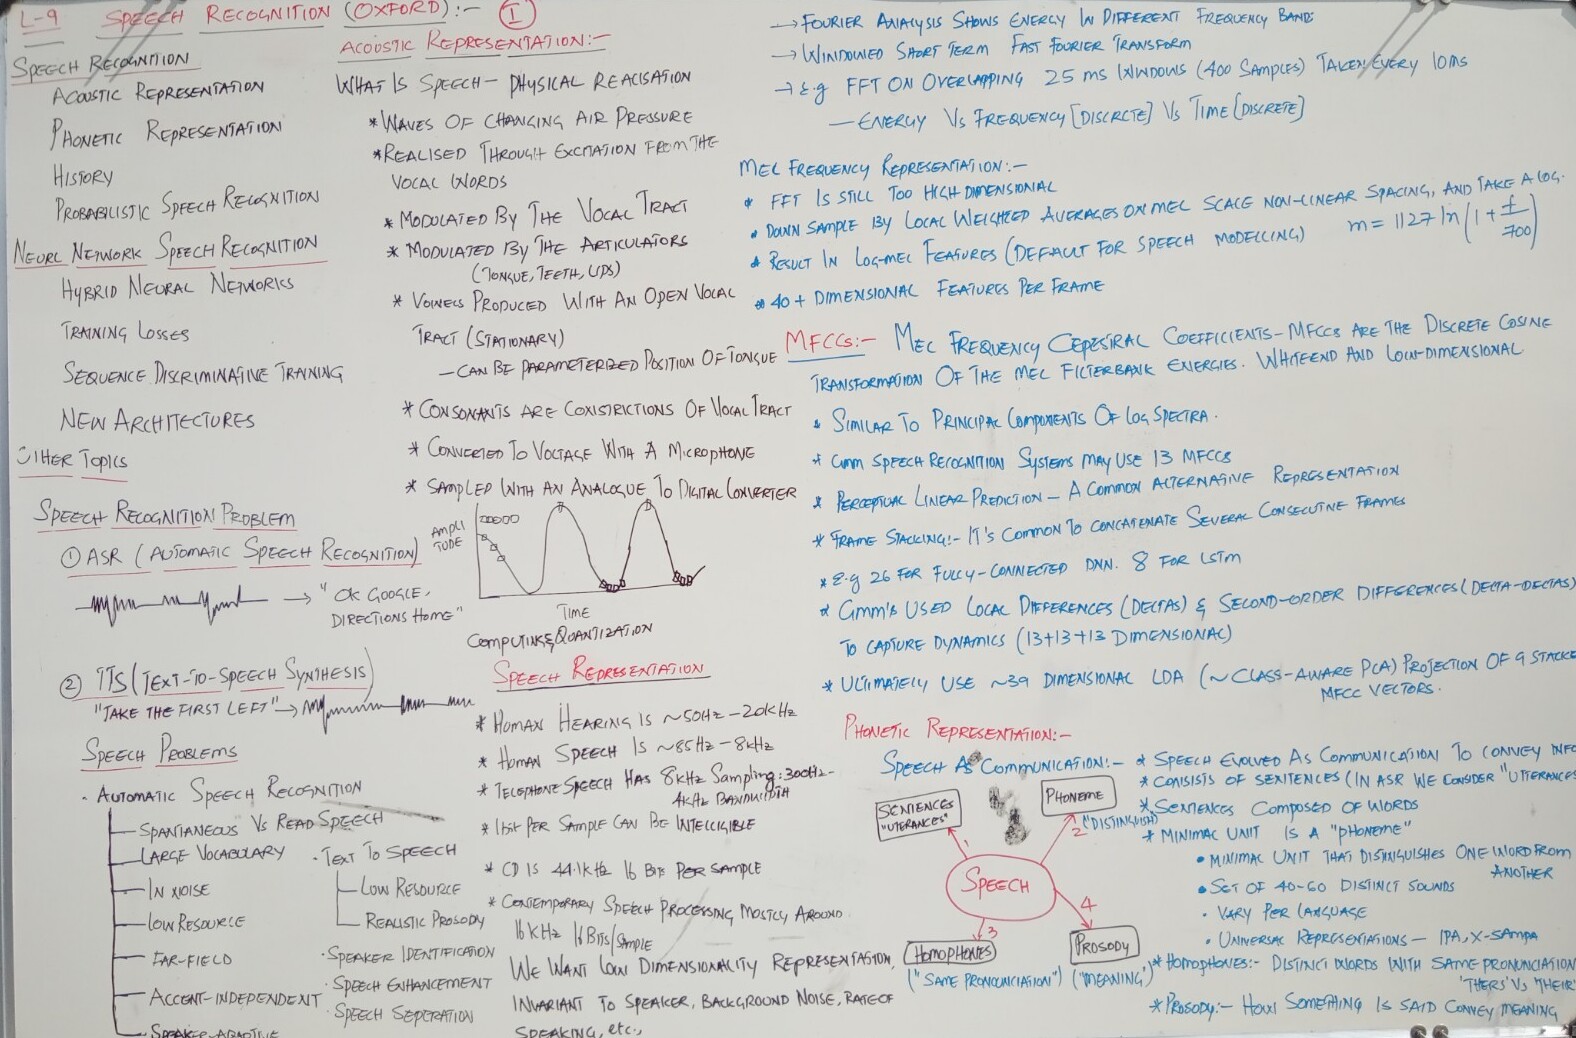 L-9 SPEECH RECOGNITION (OXFORD):- I
SPEECH RECOGNITION
ACOUSTIC REPRESENTATION
PHONETIC REPRESENTATION
HISTORY
PROBABILISTIC SPEECH RECOGNITION
NEURL NETWORK SPEECH RECOGNITION
HYBRID NEURAL NETWORKS
TRAINING LOSSES
SEQUENCE DISCRIMINATIVE TRAINING
NEW ARCHITECTURES
OTHER TOPICS
SPEECH RECOGNITION PROBLEM
① ASR (AUTOMATIC SPEECH RECOGNITION)
→ "OK GOOGLE,
DIRECTIONS HOME"
② TTS (TEXT-TO-SPEECH SYNTHESIS)
"TAKE THE FIRST LEFT" →
SPEECH PROBLEMS
· AUTOMATIC SPEECH RECOGNITION
SPANTIANEOUS VS READ SPEECH
LARGE VOCABULARY
IN NOISE
LOW RESOURCE
FAR-FIELD
ACCENT-INDEPENDENT
SPEAKER-ADAPTIVE
· TEXT TO SPEECH
LOW RESOURCE
REALISTIC PROSODY
· SPEAKER IDENTIFICATION
· SPEECH ENHANCEMENT
· SPEECH SEPERATION
ACOUSTIC REPRESENTATION:-
WHAT IS SPEECH - PHYSICAL REALISATION
* WAVES OF CHANGING AIR PRESSURE
* REALISED THROUGH EXCITATION FROM THE
VOCAL WORDS
* MODULATED BY THE VOCAL TRACT
* MODULATED BY THE ARTICULATORS
(TONGUE, TEETH, LIPS)
* VOWELS PRODUCED WITH AN OPEN VOCAL
TRACT (STATIONARY)
- CAN BE PARAMETERIZED POSITION OF TONGUE
* CONSONANTS ARE CONSTRICTIONS OF VOCAL TRACT
* CONVERTED TO VOLTAGE WITH A MICROPHONE
* SAMPLED WITH AN ANALOGUE TO DIGITAL CONVERTER
AMPLI
TUDE
TIME
COMPUTING & QUANTIZATION
SPEECH REPRESENTATION
* HUMAN HEARING IS ~50HZ-20KHZ
* HUMAN SPEECH IS ~85HZ-8KHZ
* TELEPHONE SPEECH HAS 8KHZ Sampling: 300HZ-
4KHZ BANDWIDTH
* 1 bit PER SAMPLE CAN BE INTELLIGIBLE
* CD IS 44.1KHZ 16 BITS PER SAMPLE
* CONTEMPORARY SPEECH PROCESSING MOSTLY AROUND
16 KHZ 16 BITS/SAMPLE
WE WANT LOW DIMENSIONALITY REPRESENTATION,
INVARIANT TO SPEAKER, BACKGROUND NOISE, RATE OF
SPEAKING, etc.,
→ FOURIER ANALYSIS SHOWS ENERGY IN DIFFERENT FREQUENCY BANDS
→ WINDOWED SHORT TERM FAST FOURIER TRANSFORM
→ E.g FFT ON OVERLAPPING 25 ms WINDOWS (400 SAMPLES) TAKEN EVERY 10ms
- ENERGY VS FREQUENCY [DISCRETE] VS TIME [DISCRETE]
MEL FREQUENCY REPRESENTATION:-
* FFT IS STILL TOO HIGH DIMENSIONAL
* DOWN SAMPLE BY LOCAL WEIGHTED AVERAGES ON MEL SCALE NON-LINEAR SPACING, AND TAKE A LOG.
m = 1127 ln (1 + f/700)
* RESULT IN LOG-MEL FEATURES (DEFAULT FOR SPEECH MODELLING)
* 40 + DIMENSIONAL FEATURES PER FRAME
MFCCs:- MEL FREQUENCY CEPESTRAL COEFFICIENTS - MFCCs ARE THE DISCRETE COSINE
TRANSFORMATION OF THE MEL FILTERBANK ENERGIES. WHITEEND AND LOW-DIMENSIONAL
* SIMILAR TO PRINCIPAL COMPONENTS OF LOG SPECTRA.
* GMM SPEECH RECOGNITION SYSTEMS MAY USE 13 MFCCS
* PERCEPTUAL LINEAR PREDICTION - A COMMON ALTERNATIVE REPRESENTATION
* FRAME STACKING:- IT'S COMMON TO CONCATENATE SEVERAL CONSECUTIVE FRAMES
* E.g 26 FOR FULLY-CONNECTED DNN. 8 FOR LSTM
* GMM'S USED LOCAL DIFFERENCES (DELTAS) & SECOND-ORDER DIFFERENCES (DELTA-DELTAS)
TO CAPTURE DYNAMICS (13+13+13 DIMENSIONAL)
* ULTIMATELY USE ~39 DIMENSIONAL LDA (~CLASS-AWARE PCA) PROJECTION OF 9 STACKE
MFCC VECTORS.
PHONETIC REPRESENTATION:-
SPEECH AS COMMUNICATION:- * SPEECH EVOLVED AS COMMUNICATION TO CONVEY INFO
* CONSISTS OF SENTENCES (IN ASR WE CONSIDER "UTTERANCES
* SENTENCES COMPOSED OF WORDS
* MINIMAL UNIT IS A "PHONEME"
• MINIMAL UNIT THAT DISTINGUISHES ONE WORD FROM
ANOTHER
• SET OF 40-60 DISTINCT SOUNDS
· VARY PER LANGUAGE
· UNIVERSAL REPRESENTATIONS - IPA, X-SAMPA
* HOMOPHONES:- DISTINCT WORDS WITH SAME PRONUNCIATION
'THERS' VS 'THEIR'
* PROSODY:- HOW SOMETHING IS SAID CONVEY MEANING
SENTENCES
"UTERANCES"
PHONEME
("DISTINGUISH)
1
2
SPEECH
3
4
HOMOPHONES
("SAME PRONOUNCIATION")
PROSODY
("MEANING")